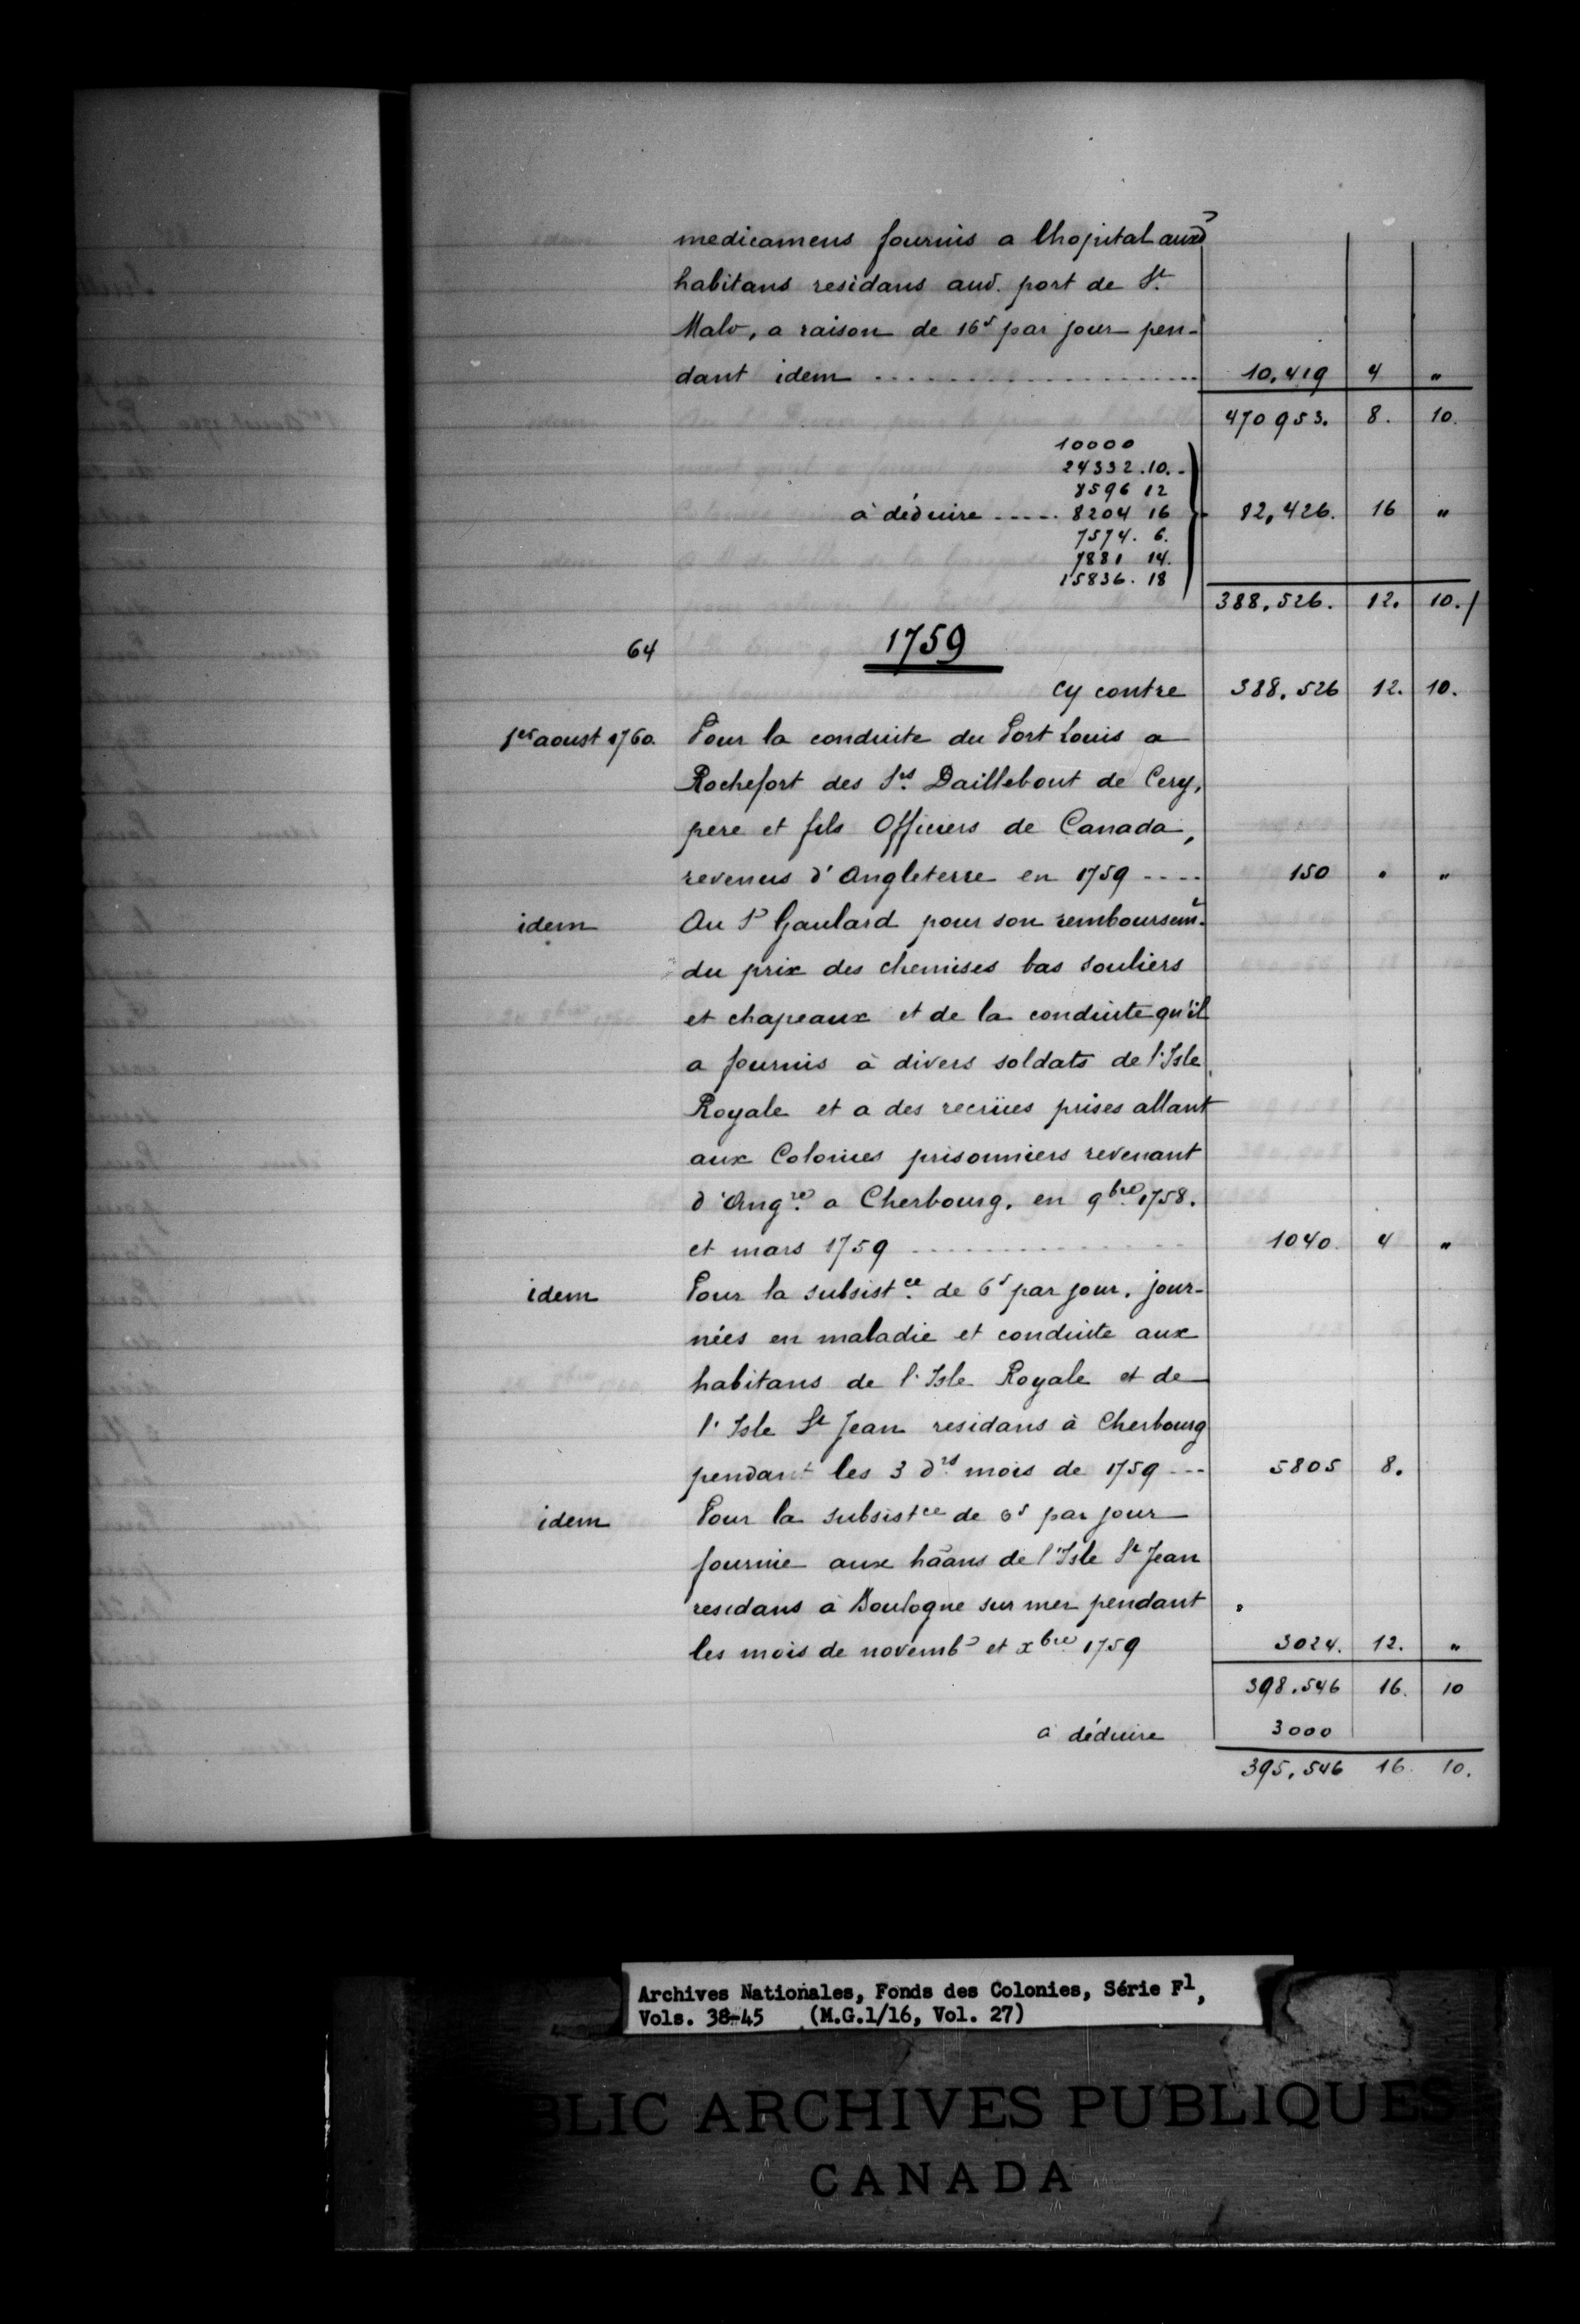 medicamens fournis a lhopital auxd
habitans residans aud. port de St.
Malo, a raison de 16s par jour pen-
dant idem .................... 10,419 4 "
470953. 8. 10.
10000
24332.10.-
8596 12
à déduire ..... 8204 16 } 82,426. 16 "
7574. 6.
7881 14.
15836. 18
388,526. 12. 10./
64 1759
cy contre 388,526 12. 10.
1er aoust 1760. Pour la conduite du Port Louis a
Rochefort des Srs. Daillebout de Cery,
pere et fils Officiers de Canada,
revenus d'Angleterre en 1759 .... 150 " "
idem Au Sr Gaulard pour son remboursemt.
du prix des chemises bas souliers
et chapeaux et de la conduite qu'il
a fournis à divers soldats de l'Isle
Royale et a des recrües prises allant
aux Colonies prisonniers revenant
d'Angre. a Cherbourg. en 9bre. 1758.
et mars 1759 .............. 1040. 4 "
idem Pour la subsistce. de 6s par jour. jour-
nées en maladie et conduite aux
habitans de l'Isle Royale et de
l'Isle St Jean residans à Cherbourg
pendant les 3 drs. mois de 1759 ... 5805 8.
idem Pour la subsistce de 6s par jour
fournie aux hãans de l'Isle St Jean
residans à Boulogne sur mer pendant
les mois de novemb et xbre 1759 3024. 12. "
398.546 16. 10
à déduire 3000
395,546 16. 10.
Archives Nationales, Fonds des Colonies, Série F1,
Vols. 38-45 (M.G.1/16, Vol. 27)
BLIC ARCHIVES PUBLIQUES
CANADA